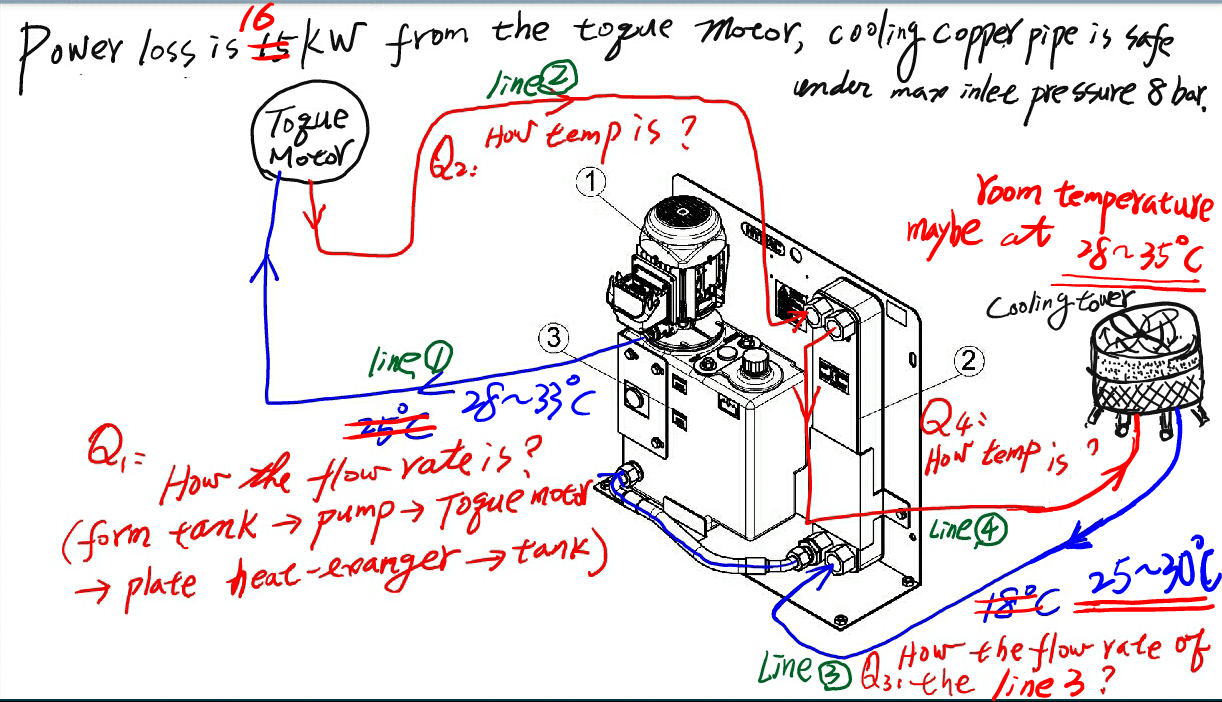 Power loss is 15 16 KW from the toque motor, cooling copper pipe is safe
under max inlet pressure 8 bar.
line ②
Toque
Motor
How temp is ?
Q2:
①
room temperature
maybe at 28~35°C
HYDAC
Cooling tower
③
line ①
②
25°C 28~33°C
Q4:
How temp is ?
Q1=
How the flow rate is?
(form tank → pump → Toque motor
→ plate heat-exanger → tank)
Line ④
18°C 25~30°C
Line ③ Q3: How the flow rate of
the line 3 ?